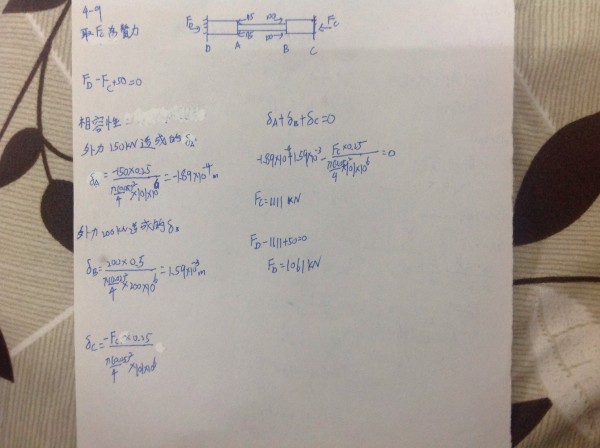 4-9
取Fc為贅力
FD 75 100 Fc
75 100
D A B C
FD-Fc+50=0
相容性=
外力150kN造成的δA
δA = -150×0.25 / (π(0.05)²/4 ×101×10⁶) = -1.89×10⁻⁴m
外力200kN造成的δB
δB = 200×0.5 / ( /4 ×200×10⁶) = 1.59×10⁻³m
δC = -Fc×0.25 / (π(0.05)²/4 ×101×10⁶)
δA+δB+δC=0
-1.89×10⁻⁴+1.59×10⁻³ - Fc×0.25 / (π(0.05)²/4 ×101×10⁶) =0
Fc=1111 KN
FD-1111+50=0
FD=1061KN